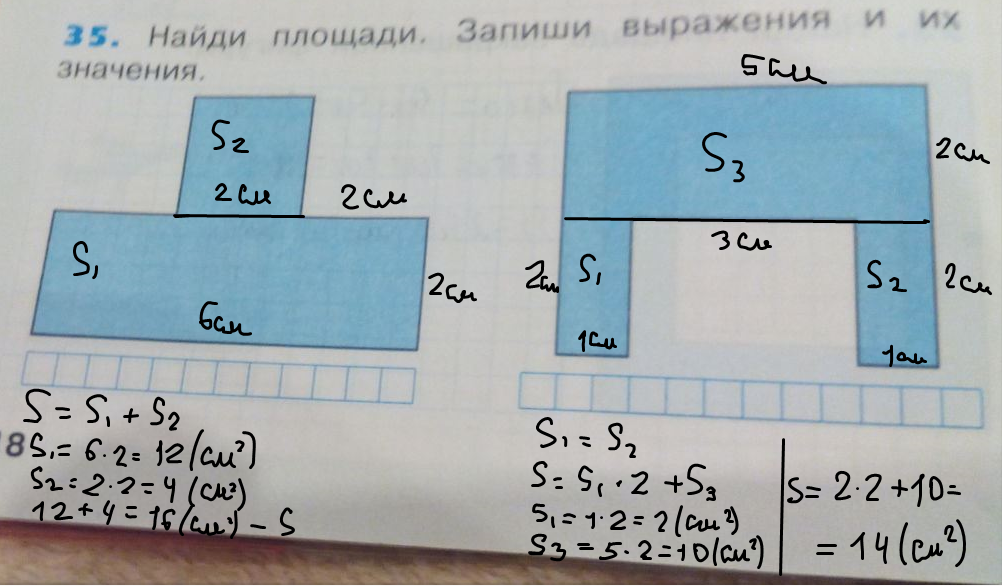 35. Найди площади. Запиши выражения и их
значения.
S₂
2см
2см
S₁
6см
2см
5см
S₃
2см
3см
2см
S₁
1см
S₂
2см
1см
S = S₁ + S₂
S₁ = 6·2 = 12 (см²)
S₂ = 2·2 = 4 (см²)
12 + 4 = 16 (см²) – S
18
S₁ = S₂
S = S₁·2 + S₃
S₁ = 1·2 = 2 (см²)
S₃ = 5·2 = 10 (см²)
S = 2·2 + 10 =
= 14 (см²)